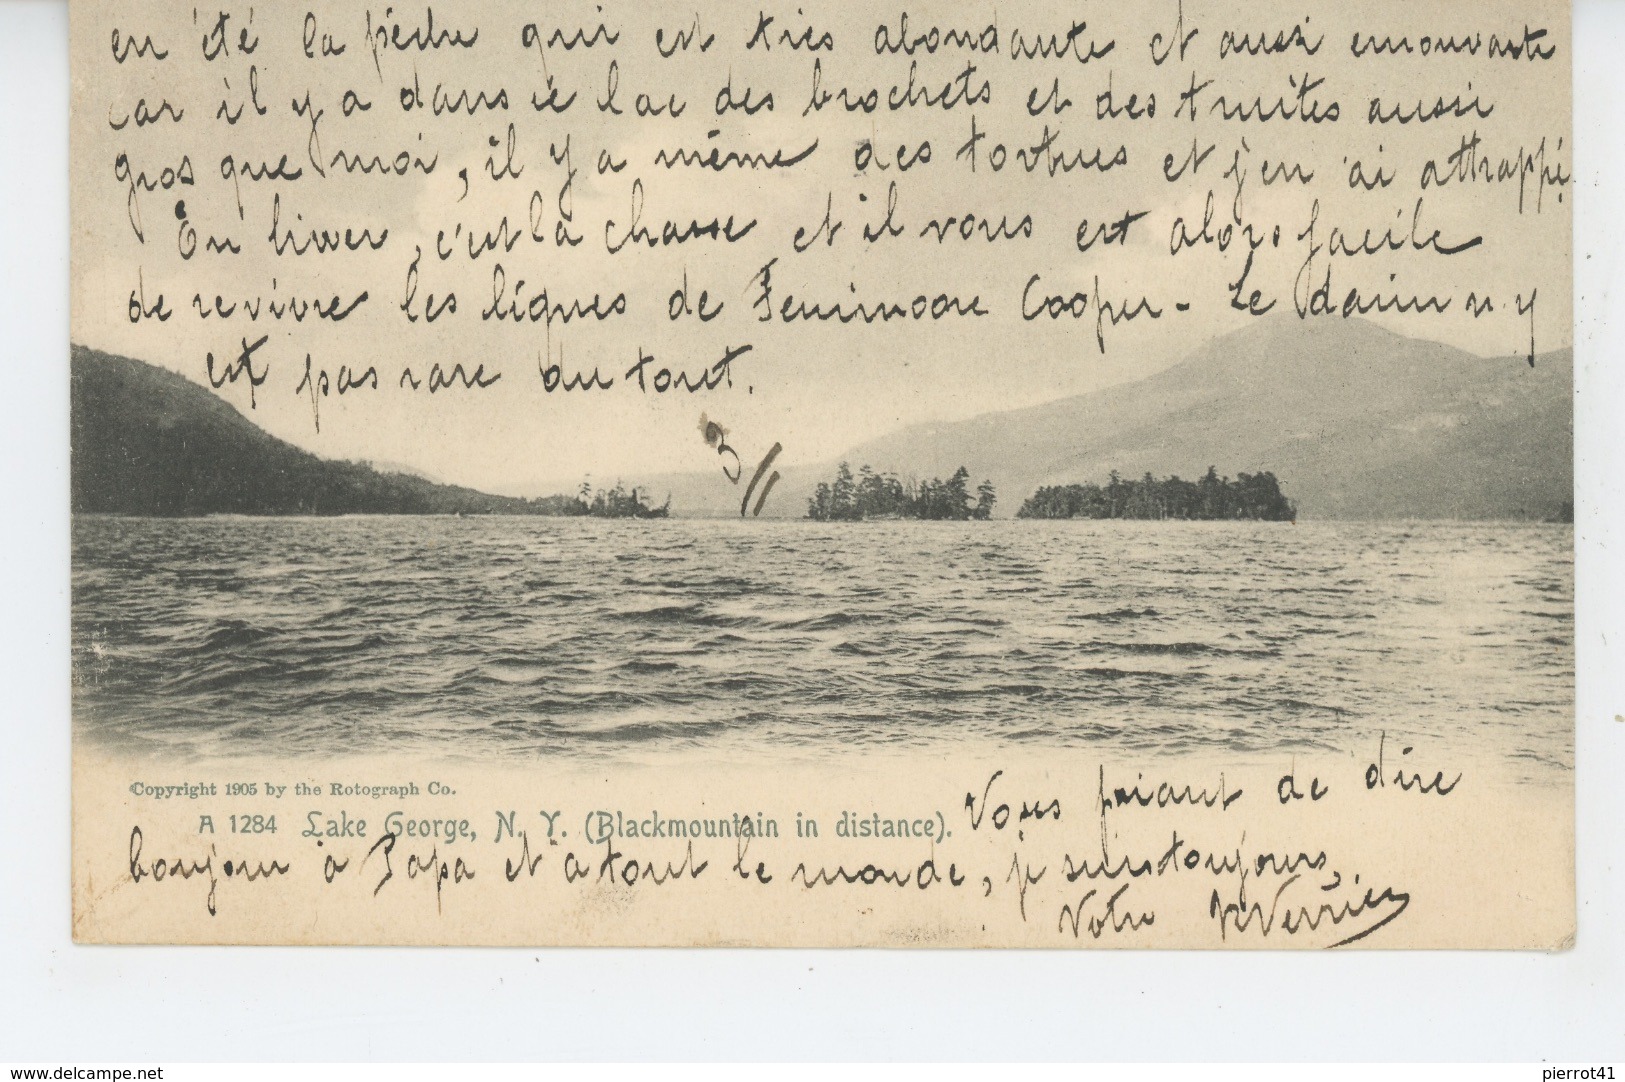 en été la pêche qui est très abondante et aussi émouvante
car il y a dans le lac des brochets et des truites aussi
gros que moi, il y a même des tortues et j'en ai attrappé.
En hiver, c'est la chasse et il vous est alors facile
de revivre les lignes de Fenimoore Cooper - Le daim n'y
est pas rare du tout.
3/11
Copyright 1905 by the Rotograph Co.
A 1284 Lake George, N. Y. (Blackmountain in distance).
Vous priant de dire
bonjour à Papa et à tout le monde, je suis toujours,
Votre Verrier
www.delcampe.net
pierrot41